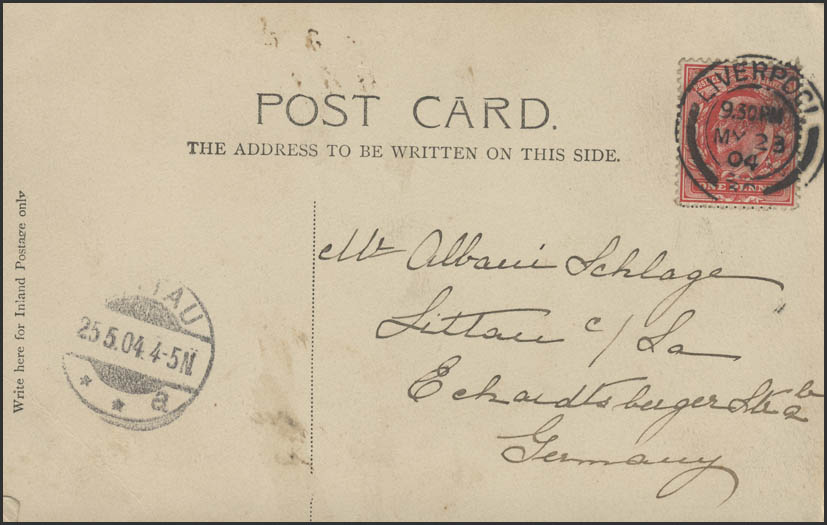 POST CARD.
THE ADDRESS TO BE WRITTEN ON THIS SIDE.
LIVERPOOL
9.30PM
MY 23
04
ONE PENNY
Write here for Inland Postage only
Mr Albani Schlage
Zittau c/ Sa
Germany
TAU
25.5.04.4-5N
* * a